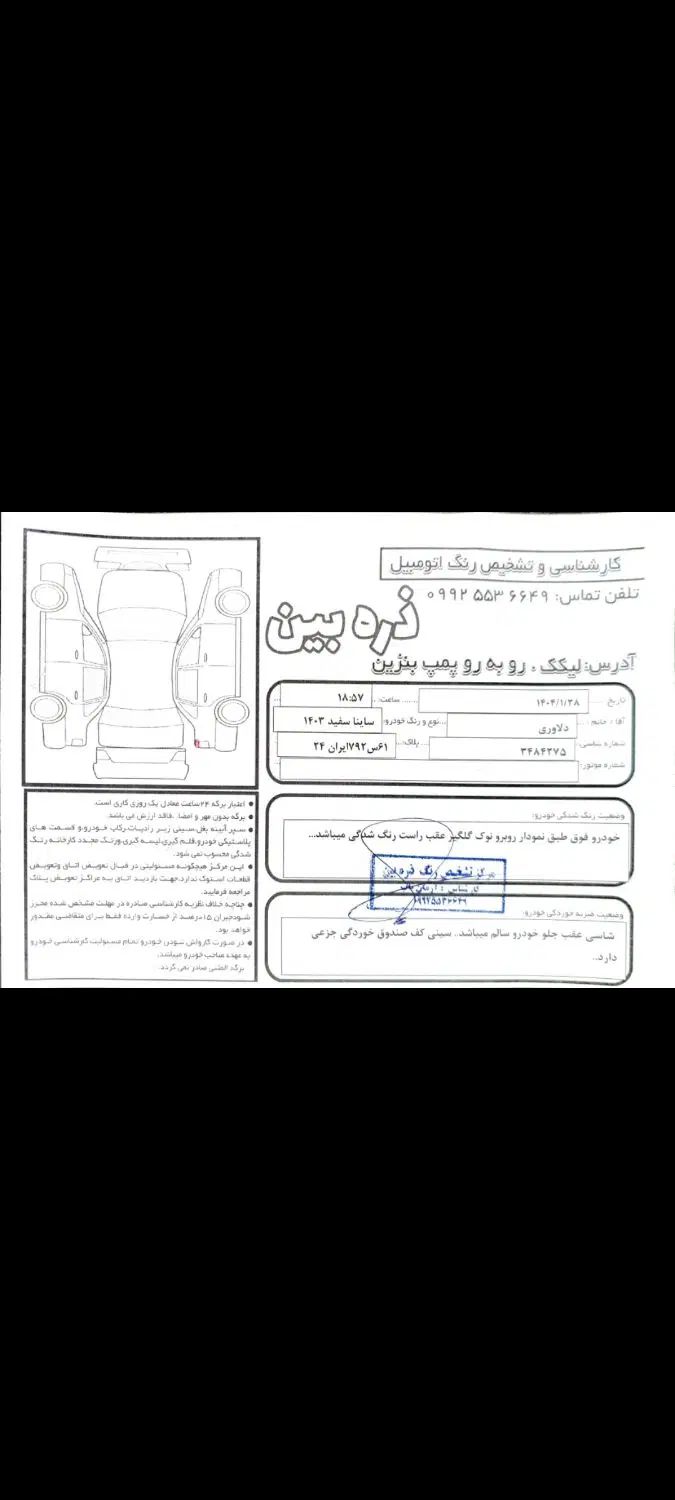 کارشناسی و تشخیص رنگ اتومبیل
تلفن تماس: ۰۹۹۲ ۵۵۳ ۶۶۴۹
ذره بین
آدرس: لیکک ، رو به رو پمپ بنزین
تاریخ ۱۴۰۴/۱/۲۸ ساعت: ۱۸:۵۷
آقا / خانم دلاوری نوع و رنگ خودرو: ساینا سفید ۱۴۰۳
شماره شاسی: ۳۴۸۴۲۷۵ پلاک: ۶۱س۷۹۲ایران ۲۴
شماره موتور:
وضعیت رنگ شدگی خودرو:
خودرو فوق طبق نمودار روبرو نوک گلگیر عقب راست رنگ شدگی میباشد...
مرکز تشخیص رنگ ذره بین
کارشناس :
۰۹۹۲۵۵۳۶۶۴۹
وضعیت ضربه خوردگی خودرو:
شاسی عقب جلو خودرو سالم میباشد.. سینی کف صندوق خوردگی جزعی
دارد..
● اعتبار برگه ۲۴ساعت معادل یک روزی کاری است.
● برگه بدون مهر و امضا ،فاقد ارزش می باشد.
● سپر آیینه بغل،سینی زیر رادیات،رکاب خودرو،و قسمت های
پلاستیکی خودرو،قلم گیری،لیسه گیری،ورنگ مجدد کارخانه رنگ
شدگی محسوب نمی شود.
● این مرکز هیچگونه مسئولیتی در قبال تعویض اتاق وتعویض
قطعات استوک ندارد،جهت بازدید اتاق به مراکز تعویض پلاک
مراجعه فرمایید.
● چناچه خلاف نظریه کارشناسی صادره در مهلت مشخص شده محرز
شودجبران ۱۵درصد از خسارت وارده فقط برای متقاضی مقدور
خواهد بود.
● در صورت کارواش نبودن خودرو تمام مسئولیت کارشناسی خودرو
به عهده صاحب خودرو میباشد.
برگه المثنی صادر نمی گردد.